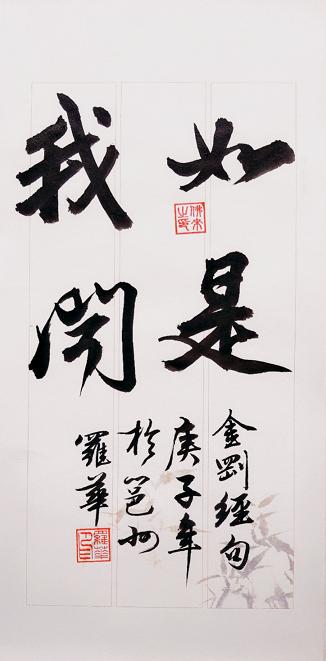 如是
我聞
金剛經句
庚子年
於邕州
羅華